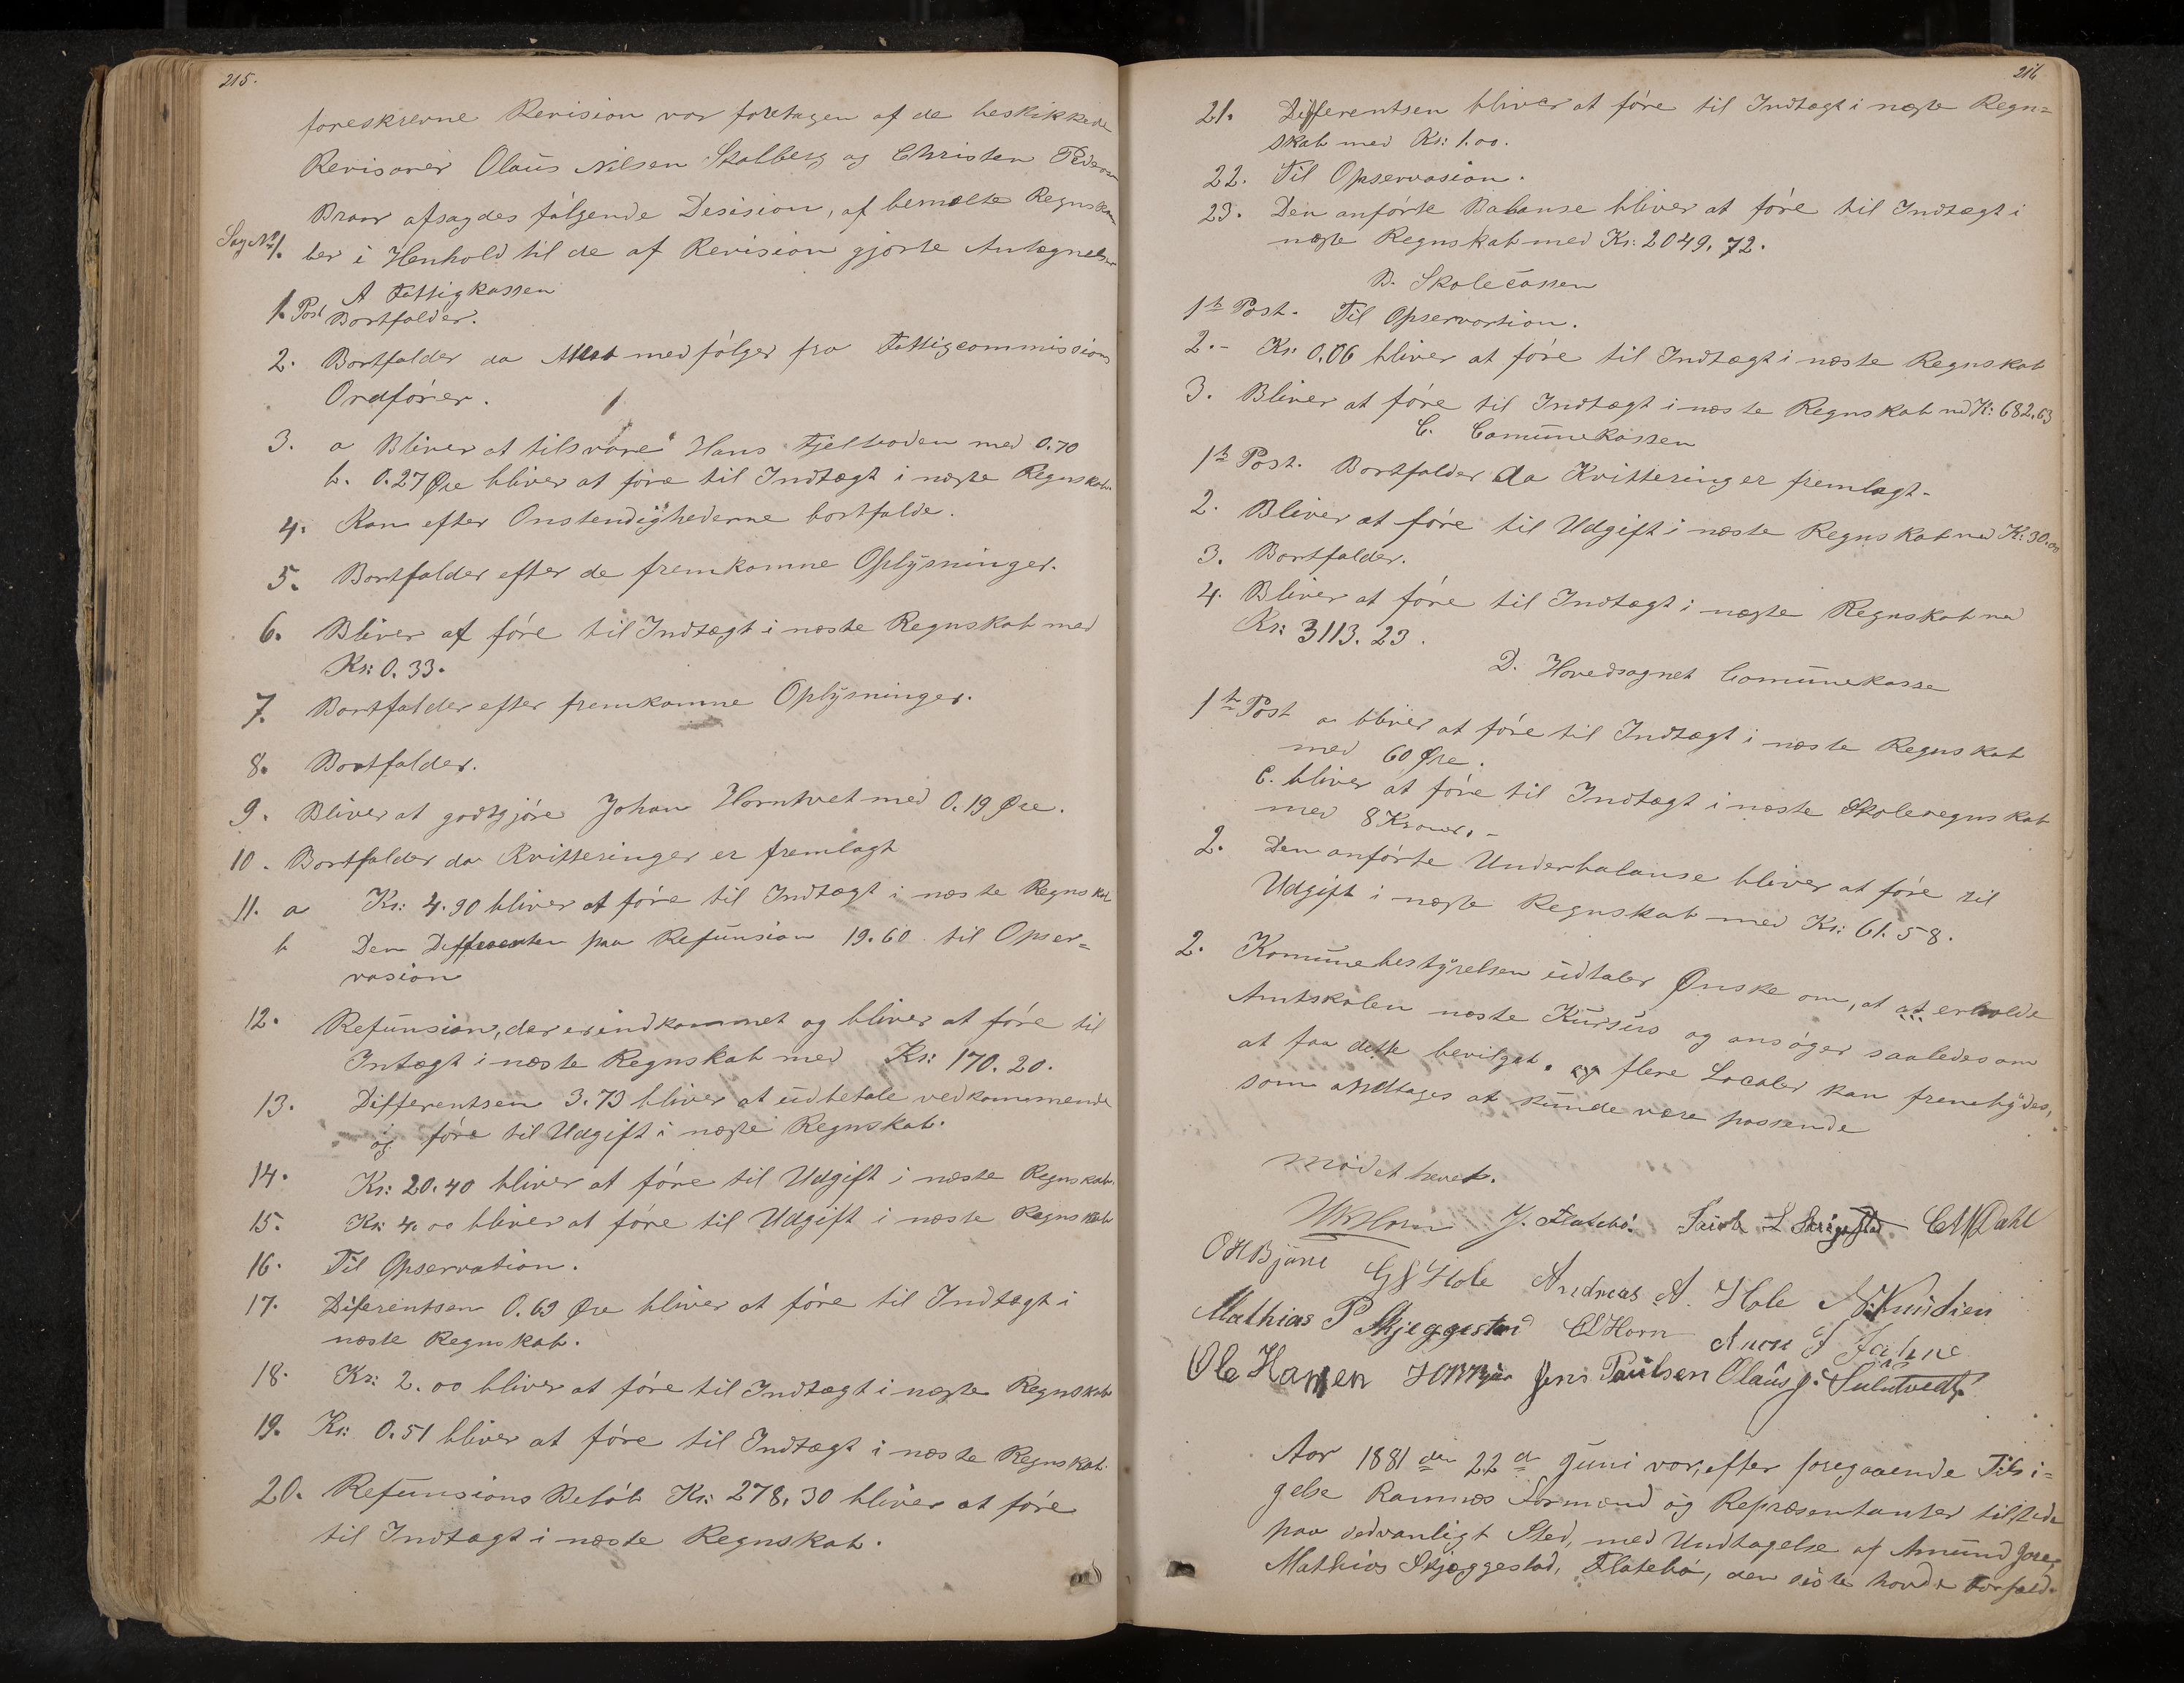 215.
foreskrevne Revision var foretagen af de beskikkede
Revisorer Olaus Nilsen Stalberg og Christen Peders
Braar afsagdes følgende Desision, af bemelte Regnska
Sag No 1. ber i Henhold til de af Revision gjorte Antægnelser
A Fattigkassen
1. Post Bortfalder.
2. Bortfalder da Attest medfølger fra Fattigcommissions
Ordfører.
3. a Bliver at tilsvare Hans Fjelboden med 0.70
b. 0.27 Øre bliver at føre til Indtægt i næste Regnskab.
4. Kan efter Onstendighederne bortfalde.
5. Bortfalder efter de fremkomne Oplysninger.
6. Bliver at føre til Indtægt i næste Regnskab med
Kr: 0.33.
7. Bortfalder efter fremkomne Oplysninger.
8. Bortfalder.
9. Bliver at godtgjøre Johan Horntvet med 0.19 Øre.
10. Bortfalder da Kvitteringer er fremlagt
11. a Kr: 4.90 bliver at føre til Indtægt i næste Regnskab
b Den Differenten paa Refunsion 19.60 til Opser=
vasion
12. Refunsion, der er indkommet og bliver at føre til
Intægt i næste Regnskab med Kr: 170.20.
13. Differentsen 3.73 bliver at udbetale vedkommende
og føre til Udgift i næste Regnskab.
14. Kr: 20.40 bliver at føre til Udgift i næste Regnskab.
15. Kr: 4.00 bliver at føre til Udgift i næste Regnskab
16. Til Opservation.
17. Diferentsen 0.69 Øre bliver at føre til Indtægt i
næste Regnskab.
18. Kr: 2.00 bliver at føre til Indtægt i næste Regnskab
19. Kr: 0.51 bliver at føre til Indtægt i næste Regnskab.
20. Refunsions Beløb Kr: 278.30 bliver at føre
til Indtægt i næste Regnskab.
216
21. Differentsen bliver at føre til Indtægt i næste Regn=
skab med Kr: 1.00.
22. Til Opservasion.
23. Den anførte Balanse bliver at føre til Indtægt i
næste Regnskab med Kr: 2049.72.
B. Skolecassen
1te Post. Til Opservartion.
2.- Kr: 0.06 bliver at føre til Indtægt i næste Regnskab
3. Bliver at føre til Indtægt i næste Regnskab md K: 682.63
C. Comunekassen
1te Post. Bortfalder da Kvittering er fremlagt-
2. Bliver at føre til Udgift i næste Regnskab med K: 30.00
3. Bortfalder.
4. Bliver at føre til Indtægt i næste Regnskab med
Kr: 3113.23.
D. Hovedsognet Comunekasse
1te Post a bliver at føre til Indtægt i næste Regnskab
med 60 Øre.
C. bliver at føre til Indtægt i næste Skoleregnskab
med 8 Kroner.-
2. Den anførte Underbalanse bliver at føre til
Udgift i næste Regnskab med Kr: 61.58.
2. Komunebestyrelsen udtaler Ønske om, at at erholde
Amtskolen næste Kursus og ansøger saaledes om
at faa dette bevilget, og flere Localer kan frembydes,
som andtages at kunde være passende
Mødet hævet.
J. Flatebø. Jacob L Skrigestad CM Dahl
OH Bjune G J Hole Andreas A. Hole N. Knudsen
Mathias P Skjeggestad CL Horn
Ole Hansen Jens Paulsen Olaus J.
Aar 1881 den 22de Juni var, efter foregaaende Tilsi=
gelse Ramnæs Formænd og Repræsentanter tilstede
paa sedvanligt Sted, med Undtagelse af Amund
Mathias Skjæggestad, Flatebø, den siste havde Forfald-